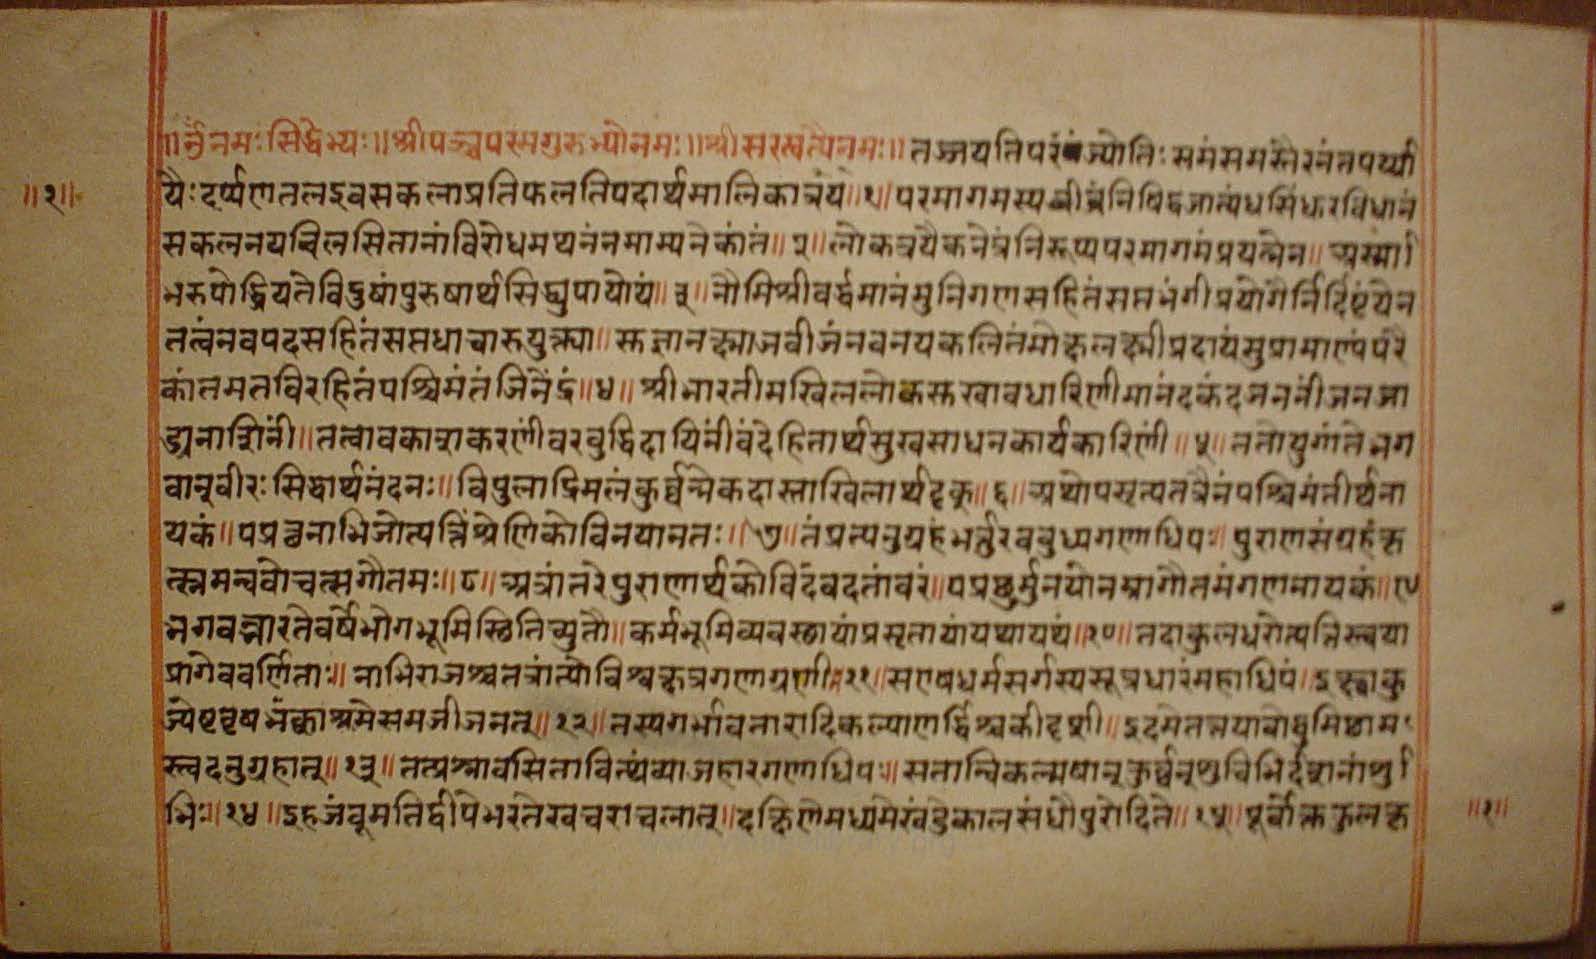 ॥ॐनमःसिद्धेभ्यः॥श्रीपञ्चपरमगुरुभ्योनमः॥श्रीसरस्वत्यैनमः॥तज्जयतिपरंज्योतिःसमंसमस्तैरनंतपर्य्या
॥१॥
यैःदर्प्पणतलइवसकलाप्रतिफलतिपदार्थमालिकायत्र॥१॥परमागमस्यबीजंनिषिद्धजात्यंधसिंधुरविधानं
सकलनयविलसितानांविरोधमथनंनमाम्यनेकांतं॥२॥लोकत्रयैकनेत्रंनिरूप्यपरमागमंप्रयत्नेन॥अस्मा
भरुपोद्ध्रियतेविदुषांपुरुषार्थसिद्ध्युपायोयं॥३॥नौमिश्रीवर्द्धमानंमुनिगणसहितंसप्तभंगीप्रयोगैर्निर्दिष्टंयेन
तत्वंनवपदसहितंसप्तधाचारुयुक्त्या॥नवनयकलितंमोक्षलक्ष्मीप्रदायंसुप्रामाण्यंपरै
कांतमतविरहितंपश्चिमंतंजिनेंद्रं॥४॥श्रीभारतीमखिललोकधारिणीमानंदकंदजननींजनजा
ड्यनाशिनीं॥तत्वावकाशकरणींवरबुद्धिदायिनींवंदेहितार्थसुखसाधनकार्यकारिणीं॥५॥ततोयुगांतेभग
वान्वीरःसिद्धार्थनंदनः॥विपुलाद्रिमलंकुर्व्वन्नेकदास्ताखिलार्थदृक्॥६॥अथोपसृत्यतत्रैनंपश्चिमंतीर्थना
यकं॥पप्रच्छश्रेणिकोविनयानतः॥७॥तंप्रत्यनुग्रहंभर्त्तुरवबुध्यगणाधिपः॥पुराणसंग्रहंकृ
त्स्नमन्ववोचत्सगौतमः॥८॥अत्रांतरेपुराणार्थकोविदंवदतांवरं॥पप्रच्छुर्मुनयोनम्रागौतमंगणनायकं॥९
भगवन्भारतेवर्षेभोगभूमिस्थितिच्युतौ॥कर्मभूमिव्यवस्थायांप्रसृतायांयथायथं॥१०॥तदाकुलधरोत्पत्तिस्त्वया
प्रागेववर्णिताः॥नाभिराजश्चतत्रांत्योविश्वक्षत्रगणाग्रणीः॥११॥सएषधर्मसर्गस्यसूत्रधारंमहाधिपं॥इक्ष्वाकु
ज्येष्टवृषभंक्वाश्रमेसमजीजनत्॥१२॥तस्यगर्भावतारादिकल्याणर्द्धिश्चकीदृशी॥इदमेतत्त्वयाबोद्धुमिच्छाम
स्त्वदनुग्रहात्॥१३॥तत्प्रश्नावसितावित्थंव्याजहारगणाधिपः॥सतान्विकल्मषान्कुर्व्वन्शुचिभिर्दशनांशु
भिः॥१४॥इहजंबूमतिद्वीपेभरतेखचराचलात्॥दक्षिणेमध्यमेखंडेकालसंधौपुरोदिते॥१५॥पूर्वोक्तकुलकृ
॥१॥